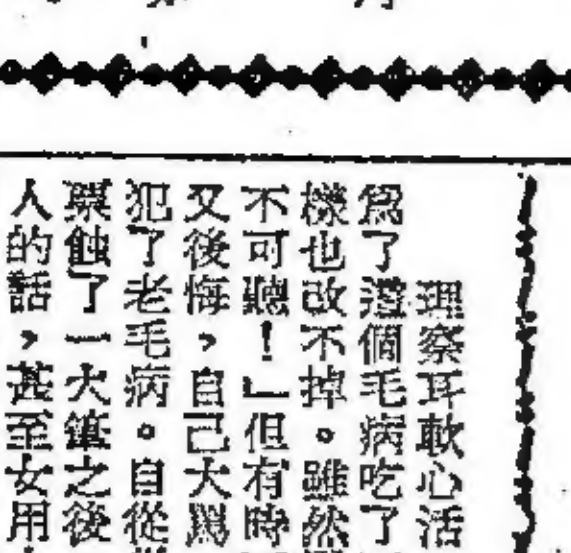 理察耳軟心活
爲了這個毛病吃了
樣也改不掉。雖然
不可聽!」但有時
又後悔,自己大罵
犯了老毛病。自從
票蝕了一大筆之後
人的話,甚至女用